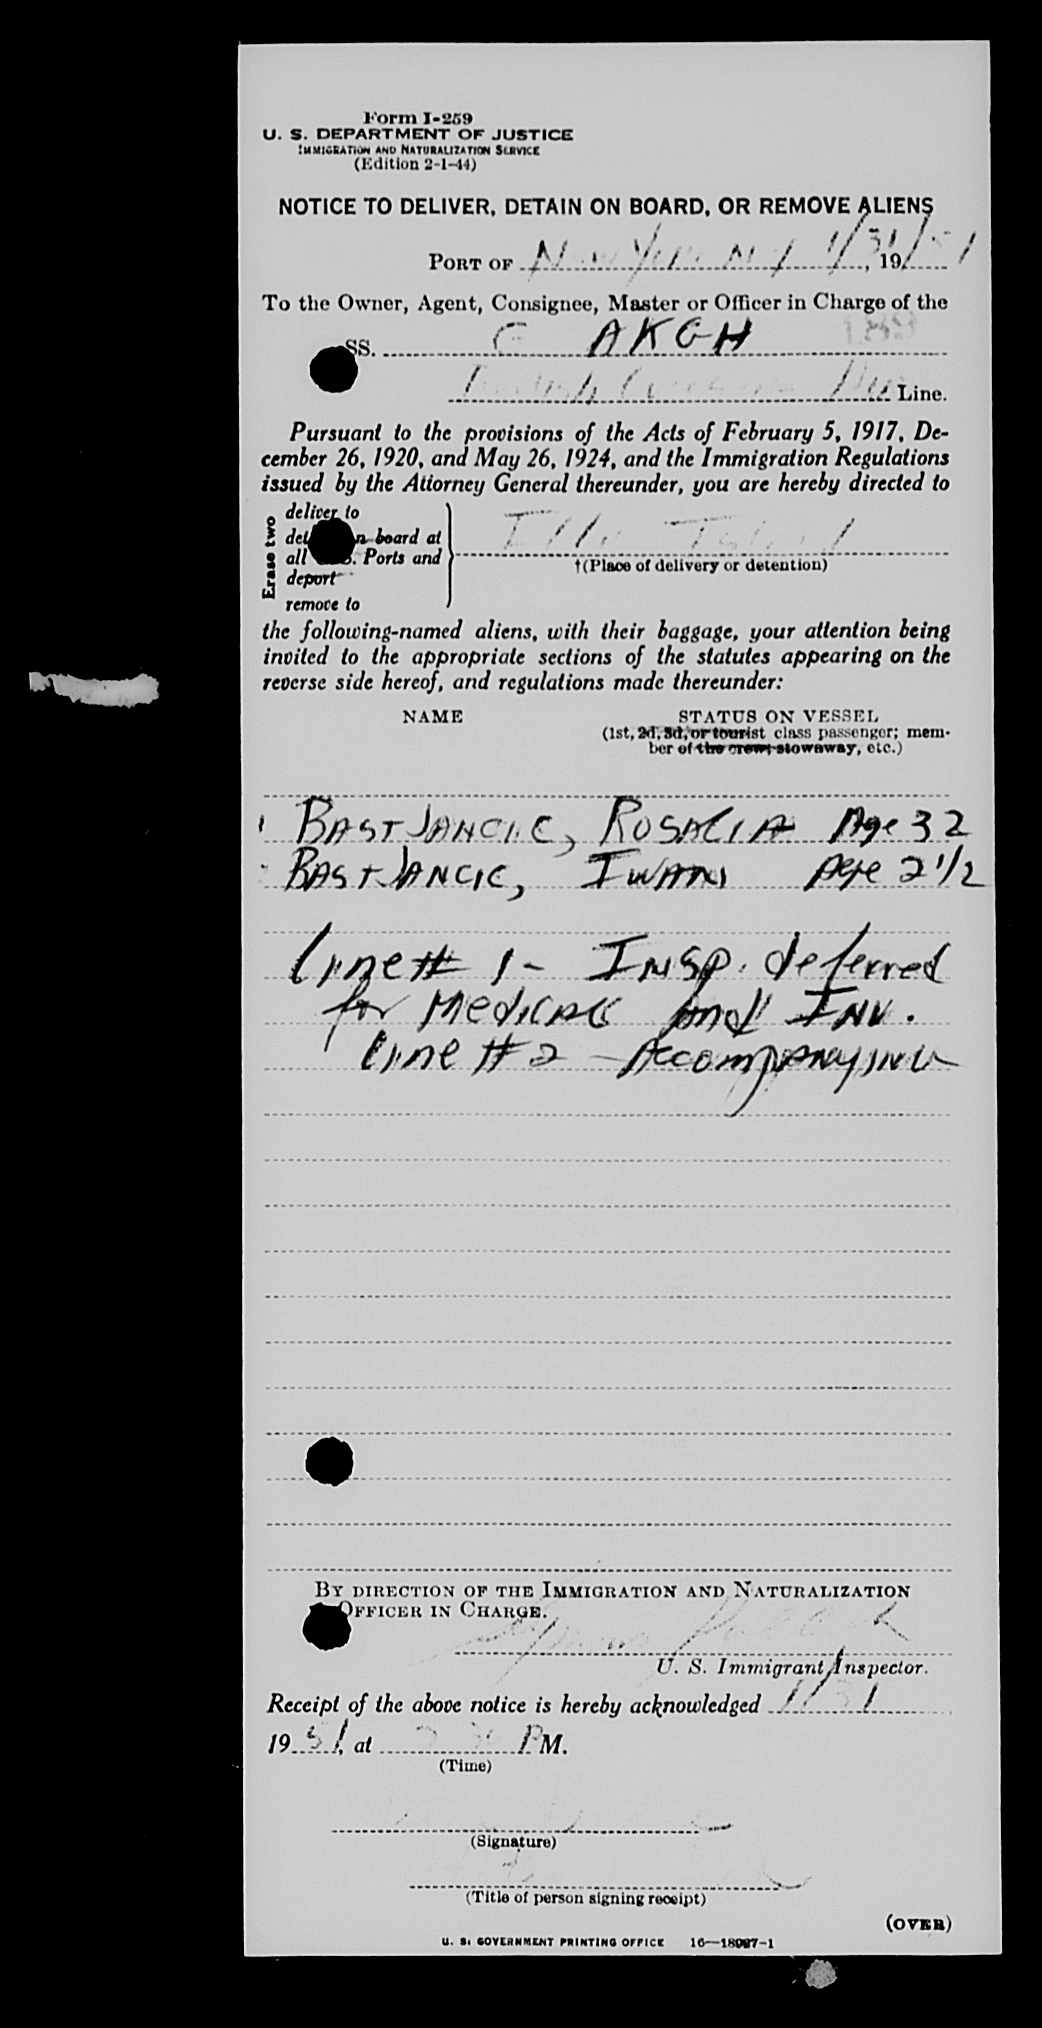 Form I-259
U. S. DEPARTMENT OF JUSTICE
IMMIGRATION AND NATURALIZATION SERVICE
(Edition 2-1-44)
NOTICE TO DELIVER, DETAIN ON BOARD, OR REMOVE ALIENS
PORT OF New York N Y 1/31/51, 19
To the Owner, Agent, Consignee, Master or Officer in Charge of the
SS. G AKGH 189
Line.
Pursuant to the provisions of the Acts of February 5, 1917, De-
cember 26, 1920, and May 26, 1924, and the Immigration Regulations
issued by the Attorney General thereunder, you are hereby directed to
Erase two
deliver to
board at
all Ports and
deport
remove to
Ellis Island
†(Place of delivery or detention)
the following-named aliens, with their baggage, your attention being
invited to the appropriate sections of the statutes appearing on the
reverse side hereof, and regulations made thereunder:
NAME STATUS ON VESSEL
(1st, 2d, 3d, or tourist class passenger; mem-
ber of the crew, stowaway, etc.)
1 BASTJANCIC, ROSALIA Age 32
BASTJANCIC, IWAN Age 2 1/2
Line # 1 - INSP. deferred
for MEDICAL and INV.
Line # 2 - Accompanying
BY DIRECTION OF THE IMMIGRATION AND NATURALIZATION
OFFICER IN CHARGE.
U. S. Immigrant Inspector.
Receipt of the above notice is hereby acknowledged 1/31
19 51, at PM.
(Time)
(Signature)
(Title of person signing receipt)
(OVER)
U. S. GOVERNMENT PRINTING OFFICE 16—18087-1